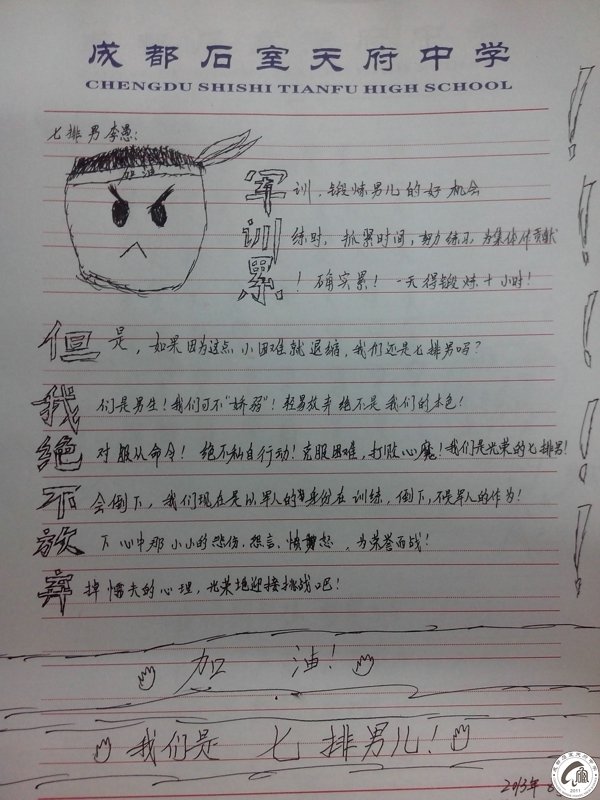 成都石室天府中学
CHENGDU SHISHI TIANFU HIGH SCHOOL
七排男李愚:
加油
军训,锻炼男儿的好机会
训练时,抓紧时间,努力练习,为集体作贡献
累!确实累!一天得锻炼十小时!
但是,如果因为这点小困难就退缩,我们还是七排男吗?
我们是男生!我们可不"娇弱"!轻易放弃绝不是我们的本色!
绝对服从命令!绝不私自行动!克服困难,打败心魔!我们是光荣的七排男!
不会倒下,我们现在是以军人的身份在训练,倒下,不是军人的作为!
放下心中那小小的悲伤、怨言、愤怒,为荣誉而战!
弃掉懦夫的心理,光荣地迎接挑战吧!
加油!
我们是七排男儿!
2013年
2011